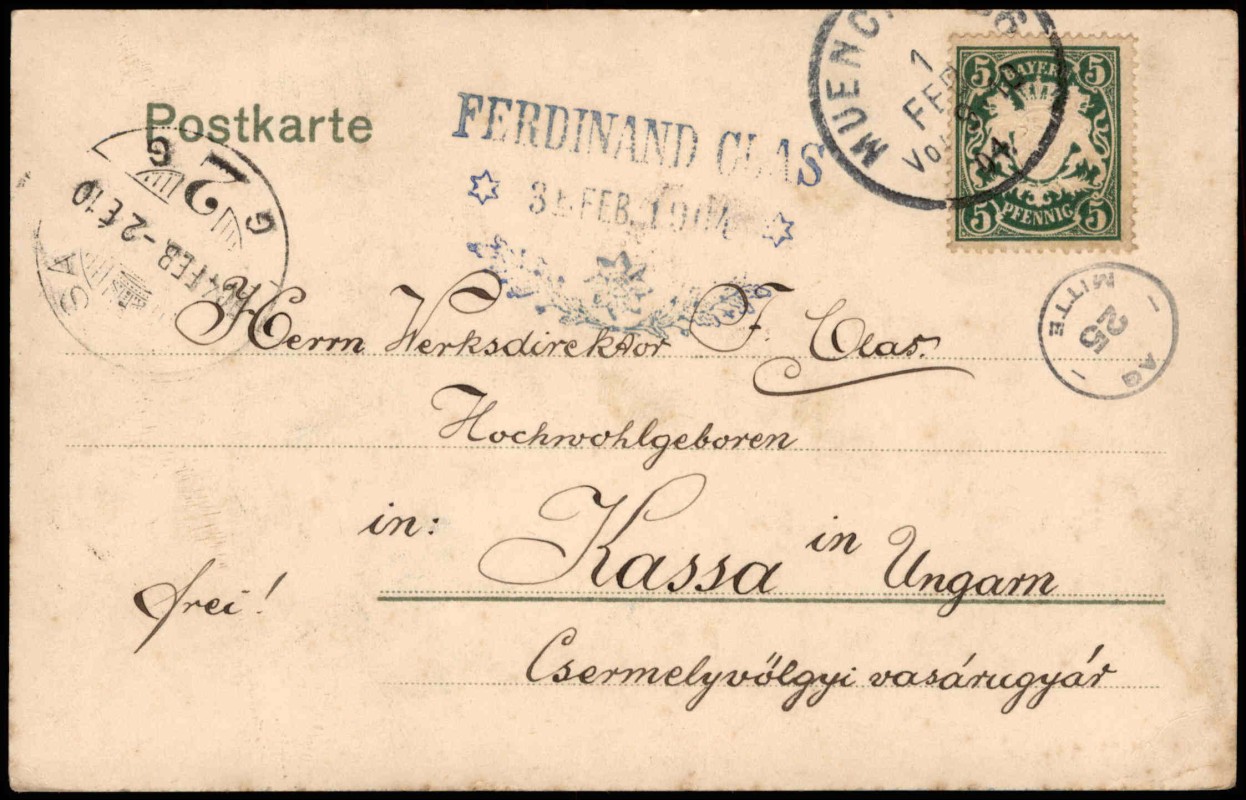 Postkarte
FERDINAND GLAS
FEB. 1904
MUENCH
1
FEB
04
5 BAYERN 5
5 PFENNIG 5
MITTE
25
AG
FEB.-2
Herrn Werksdirektor F. Glas.
Hochwohlgeboren
in: Kassa in Ungarn
frei!
Csermelyvölgyi vasárugyár